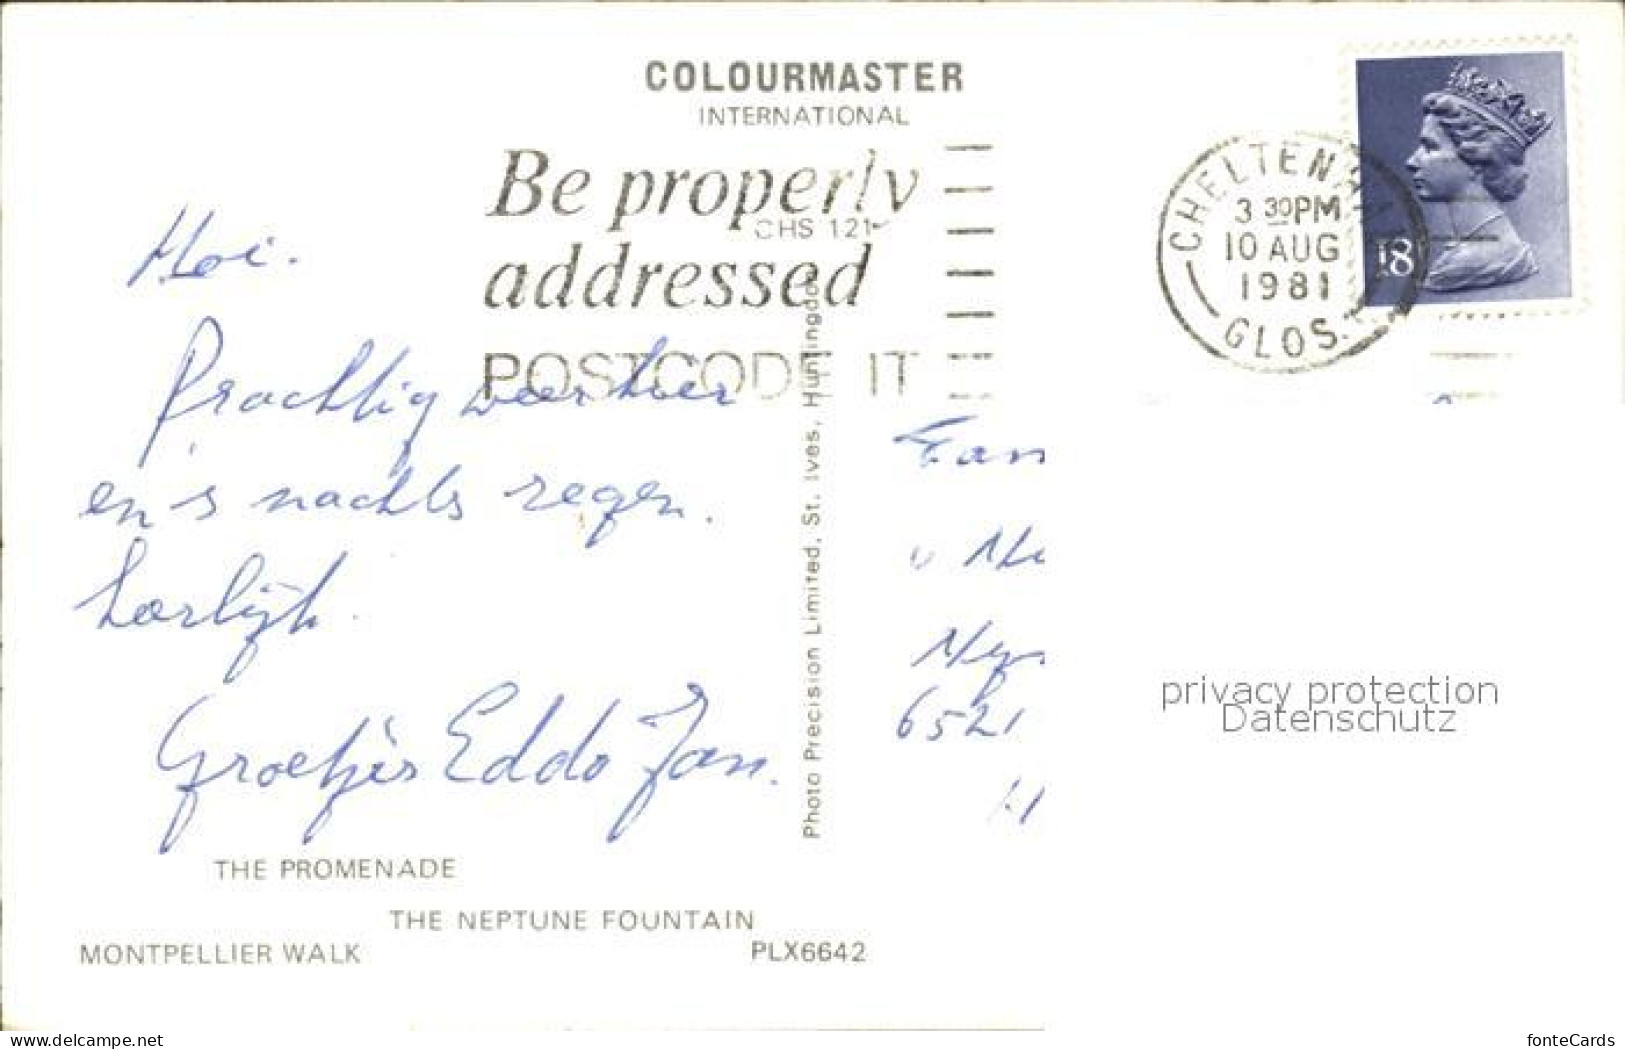 COLOURMASTER
INTERNATIONAL
Be properly
CHS 121
addressed
POSTCODE IT
CHELTENHAM
3 30PM
10 AUG
1981
GLOS.
18
Hoi.
Prachtig weer hier
en s nachts regen.
heerlijk.
Groetjes Eddo Jan.
Photo Precision Limited, St. Ives, Huntingdon
Fam
v
6521
privacy protection
Datenschutz
THE PROMENADE
THE NEPTUNE FOUNTAIN
MONTPELLIER WALK
PLX6642
www.delcampe.net
fonteCards